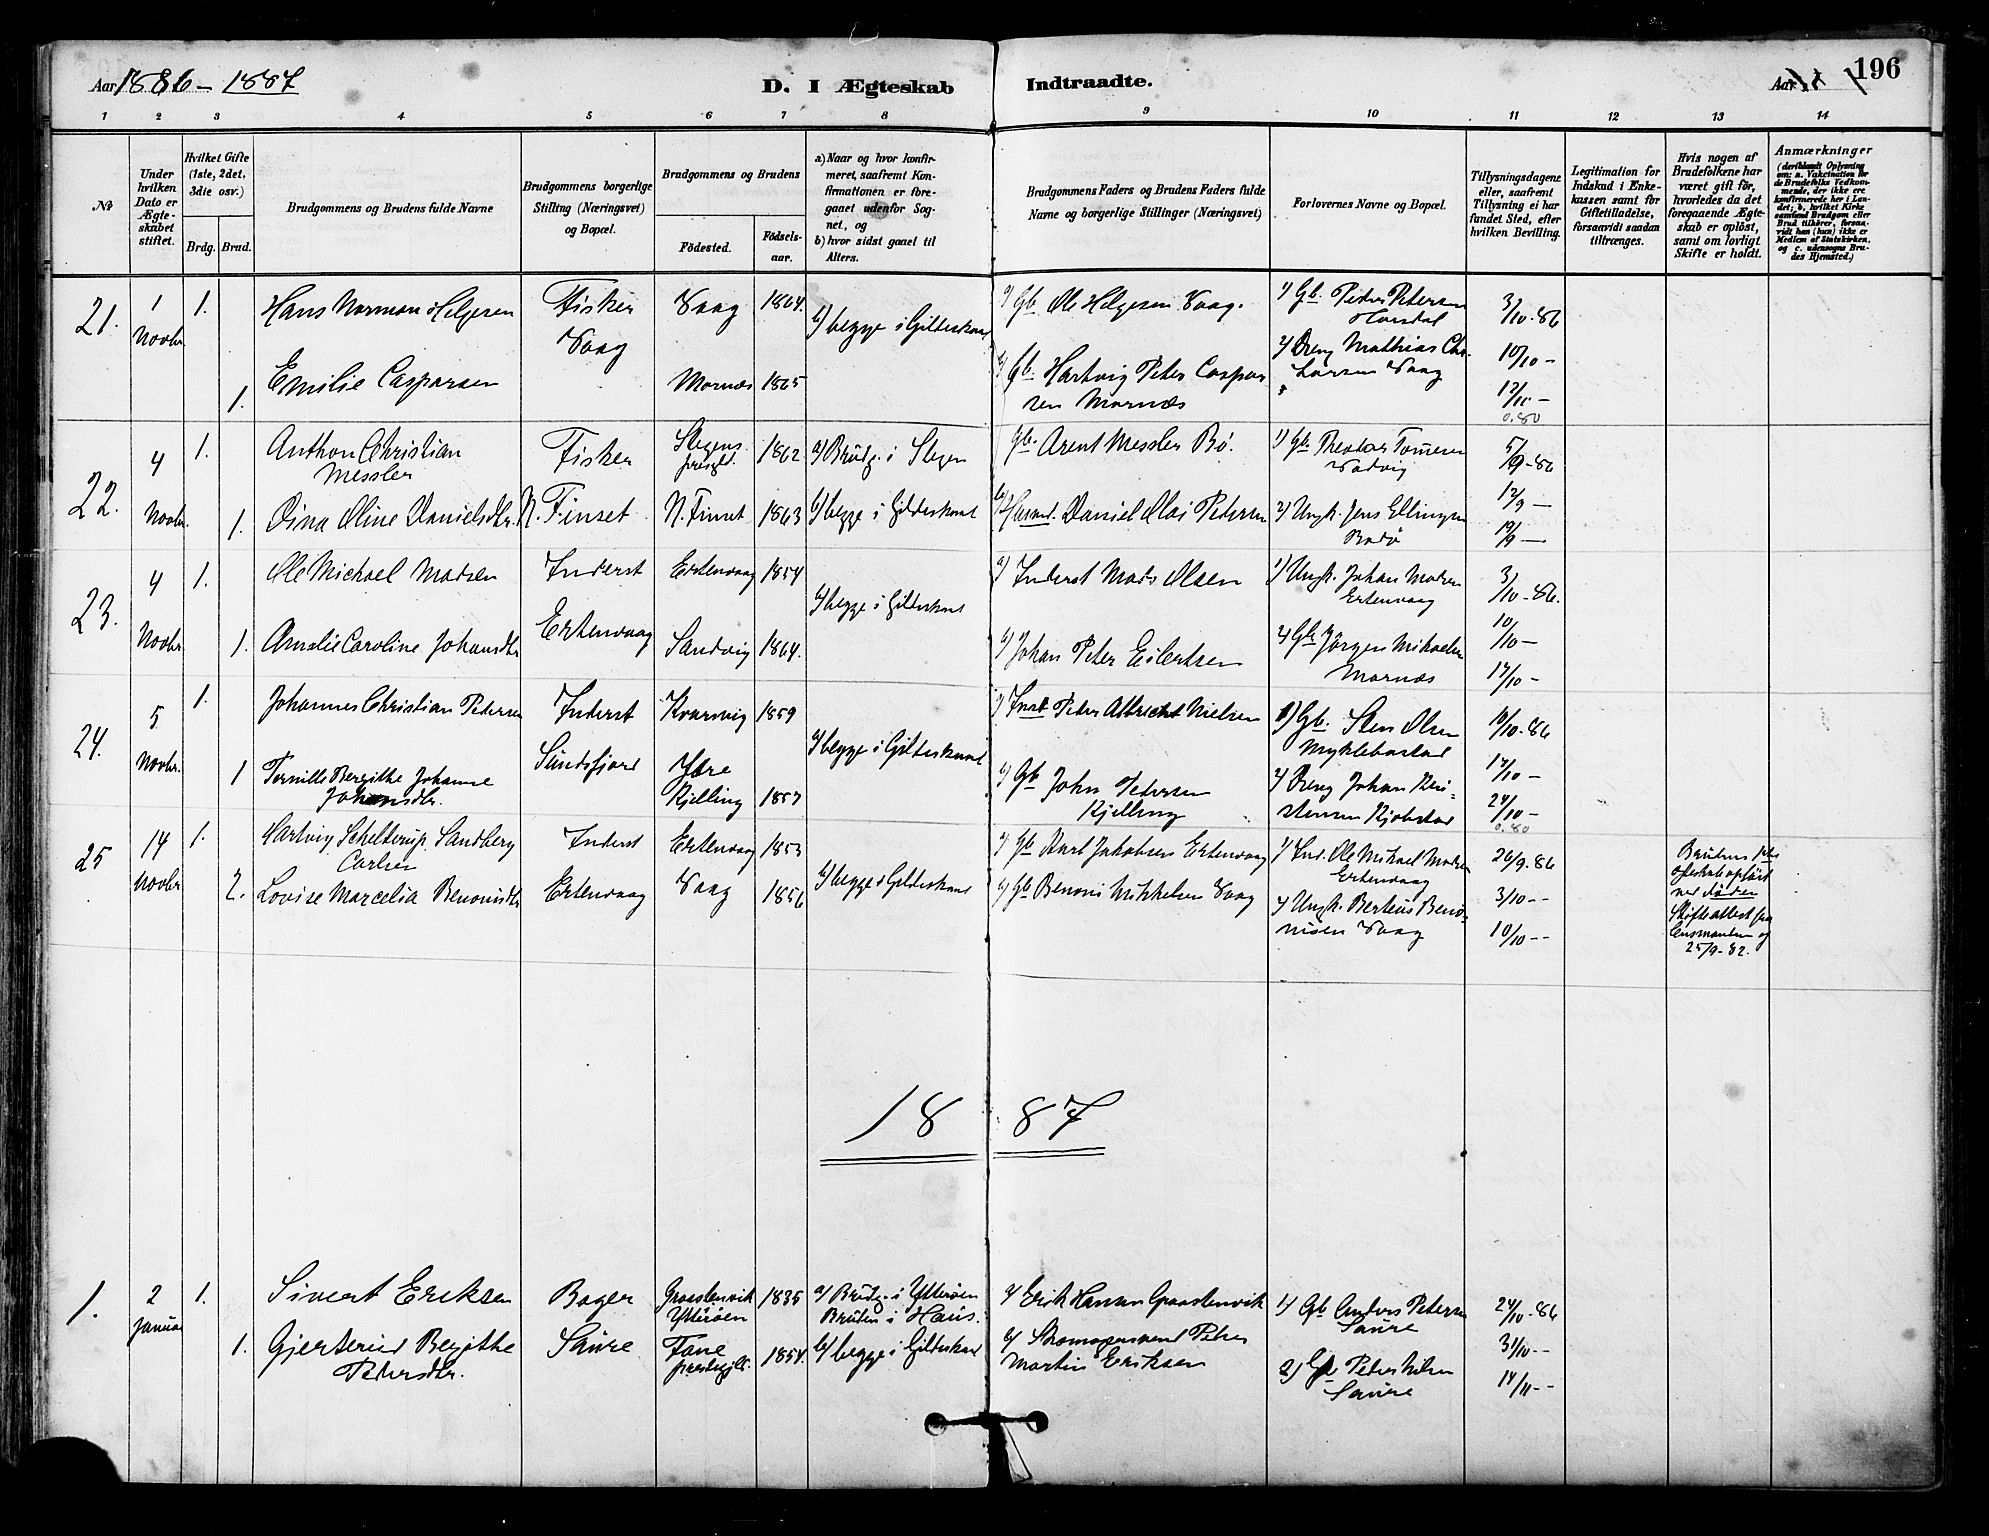 Aar 1886 – 1887
D. I Ægteskab Indtraadte.
Aar
196
1 2 3 4 5 6 7 8 9 10 11 12 13 14
No
Under hvilken Dato er Ægteskabet stiftet.
Hvilket Gifte (1ste, 2det, 3die osv.)
Brdg. Brud.
Brudgommens og Brudens fulde Navne
Brudgommens borgerlige Stilling (Næringsvei) og Bopæl.
Brudgommens og Brudens
Födested.
Födselsaar.
a) Naar og hvor konfirmeret, saafremt Konfirmationen er foregaaet udenfor Sognet, og
b) hvor sidst gaaet til Alters.
Brudgommens Faders og Brudens Faders fulde Navne og borgerlige Stillinger (Næringsvei)
Forlovernes Navne og Bopæl.
Tillysningsdagene eller, saafremt Tillysning ei har fundet Sted, efter hvilken Bevilling.
Legitimation for Indskud i Enkekassen samt for Giftetilladelse, forsaavidt saadan tiltrænges.
Hvis nogen af Brudefolkene har været gift för, hvorledes da det foregaaende Ægteskab er oplöst, samt om lovligt Skifte er holdt.
Anmærkninger
(deriblandt Oplysning om: a. Vakcination for de Brudefolks Vedkommende, der ikke ere konfirmerede her i Landet; b, hvilket Kirkesamfund Brudgom eller Brud tilhörer, forsaavidt han (hun) ikke er Medlem af Statskirken, og c. udensogns Brudes Hjemsted.)
21. 1 Novbr. 1. Hans Norman Helgesen Fisker Vaag Vaag 1864. b) begge i Gildeskaal a) Gb. Ole Helgesen Vaag. 1) Gb. Peder Petersen Horsdal 3/10-86
1. Emilie Caspersen Mornæs 1865 b) Gb. Hartvig Peter Caspersen Mornæs 2) Dreng Mathias Larsen Vaag 10/10 –
17/10 –
0.80
22. 4 Novbr. 1. Anthon Christian Messler Fisker Stegens prestgld. 1862 a) Brudg. i Stegen Gb. Arent Messler Bø. 1) Gb. Theodor Tomesen Vadvig 5/9-86
1. Dina Oline Danielsdtr. N. Finset N. Finset 1863 b) begge i Gildeskaal b) Husmd. Daniel Olai Petersen 2) Ungk. Jens Ellingsen Bodø 12/9 –
19/9 –
23. 4 Novbr. 1. Ole Michael Madsen Inderst Ertenvaag Ertenvaag 1854 b) begge i Gildeskaal a) Inderst Mads Olsen 1) Ungk. Johan Madsen Ertenvaag 3/10-86.
1. Amalie Caroline Johansdtr Sandvig 1864. b) Johan Peter Eilertsen 2) Gb Jörgen Mikaelsen Mornæs 10/10 –
17/10 –
24. 5 Novbr. 1. Johannes Christian Pedersen Inderst Sundsfjord Kvarsvig 1859 b) begge i Gildeskaal a) Inst Peder Albrecht Nielsen 1) Gb. Sten Olsen Myklebostad 10/10-86
1 Pernille Bergithe Johanne Johnsdtr. Ydre Kjelling 1857 b) Gb John Pedersen Kjelling 2) Dreng Johan Kristensen Kjøbstad 17/10 –
24/10 –
0.80
25 14 Novbr 1. Hartvig Schelterup Sandberg Carlsen Inderst Ertenvaag Ertenvaag 1853 b) begge i Gildeskaal a) Gb Kurt Jakobsen Ertenvaag 1) Ind. Ole Mikael Madsen Ertenvaag 26/9.86
2. Lovise Marcelia Benonisdtr Vaag 1856 b) Gb Benoni Mikkelsen Vaag 2) Ungk. Berteus Benonisen Vaag 3/10 --
10/10 --
Brudens første Ægteskab opløst ved døden
Skifteattest fra Lensmanden og 25/9-82.
1887
1. 2 Januar 1. Sivert Eriksen Bager Saure Graastenvik Ytterøen 1835 a) Brudg. i Ytterøen Bruden i Haus. a) Erik Hansen Graastenvik 1) Gb Anders Petersen Saure 24/10-86
1. Gjertrud Bergithe Pedersdtr. Fane prestegjld. 1854. b) begge i Gildeskaal b) Skomagersvend Peder Martin Eriksen 2) Gb Peder Nilsen Saure 31/10 --
14/11 --